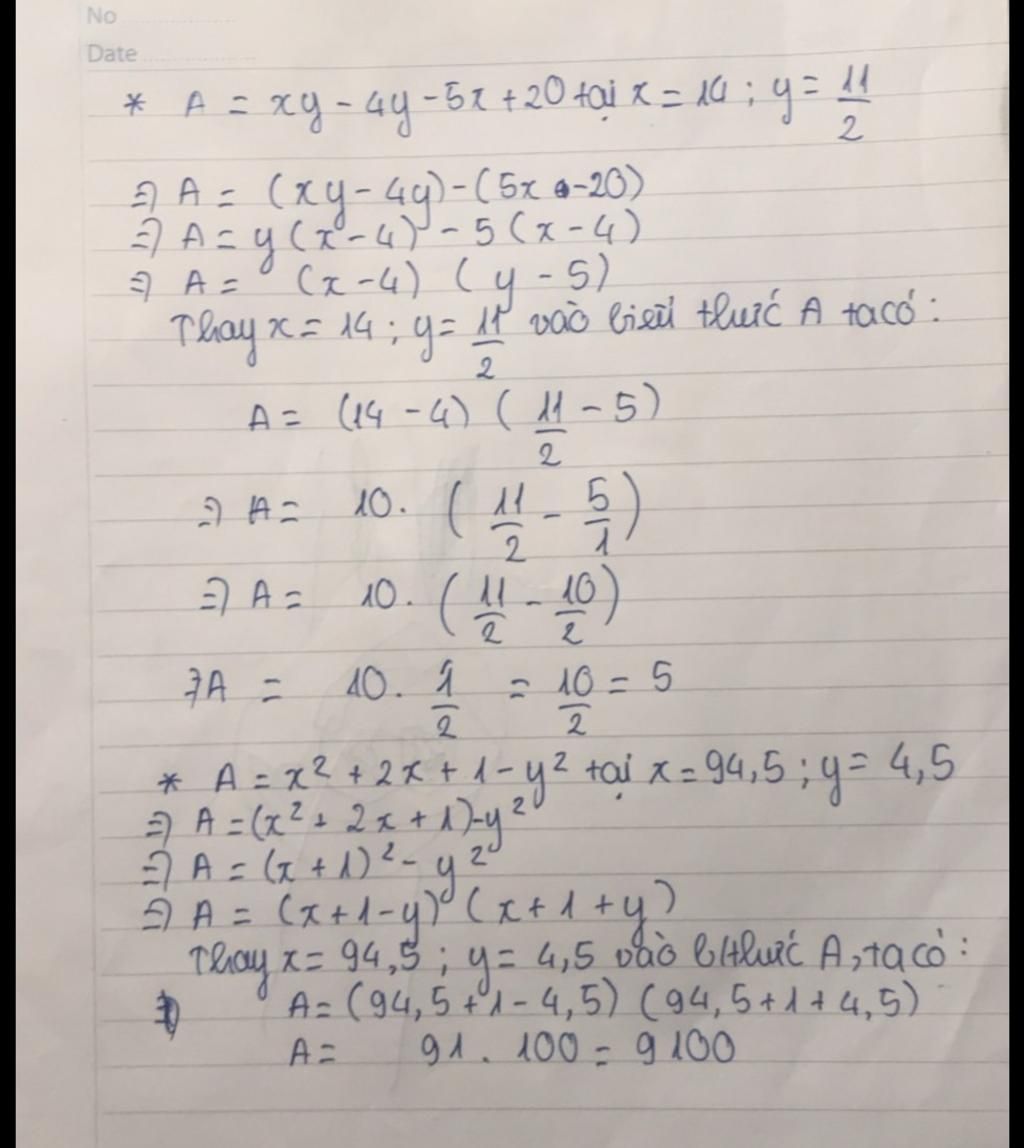 No
Date
* A = xy - 4y - 5x + 20 tại x = 14 ; y = 11/2
=) A = (xy - 4y) - (5x - 20)
=) A = y (x - 4) - 5 (x - 4)
=) A = (x - 4) (y - 5)
Thay x = 14 ; y = 11/2 vào biểu thức A ta có :
A = (14 - 4) ( 11/2 - 5)
=) A = 10. ( 11/2 - 5/1 )
=) A = 10. ( 11/2 - 10/2 )
=) A = 10. 1/2 = 10/2 = 5
* A = x² + 2x + 1 - y² tại x = 94,5 ; y = 4,5
=) A = (x² + 2x + 1) - y²
=) A = (x + 1)² - y²
=) A = (x + 1 - y) (x + 1 + y)
Thay x = 94,5 ; y = 4,5 vào b/thức A, ta có :
A = (94,5 + 1 - 4,5) (94,5 + 1 + 4,5)
A = 91 . 100 = 9100